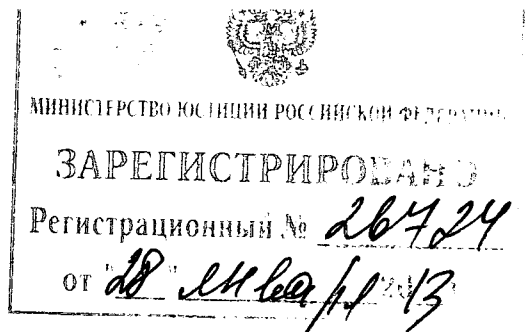 МИНИСТЕРСТВО ЮСТИЦИИ РОССИЙСКОЙ ФЕДЕРАЦИИ
ЗАРЕГИСТРИРОВАНО
Регистрационный № 26724
от "28" января 2013